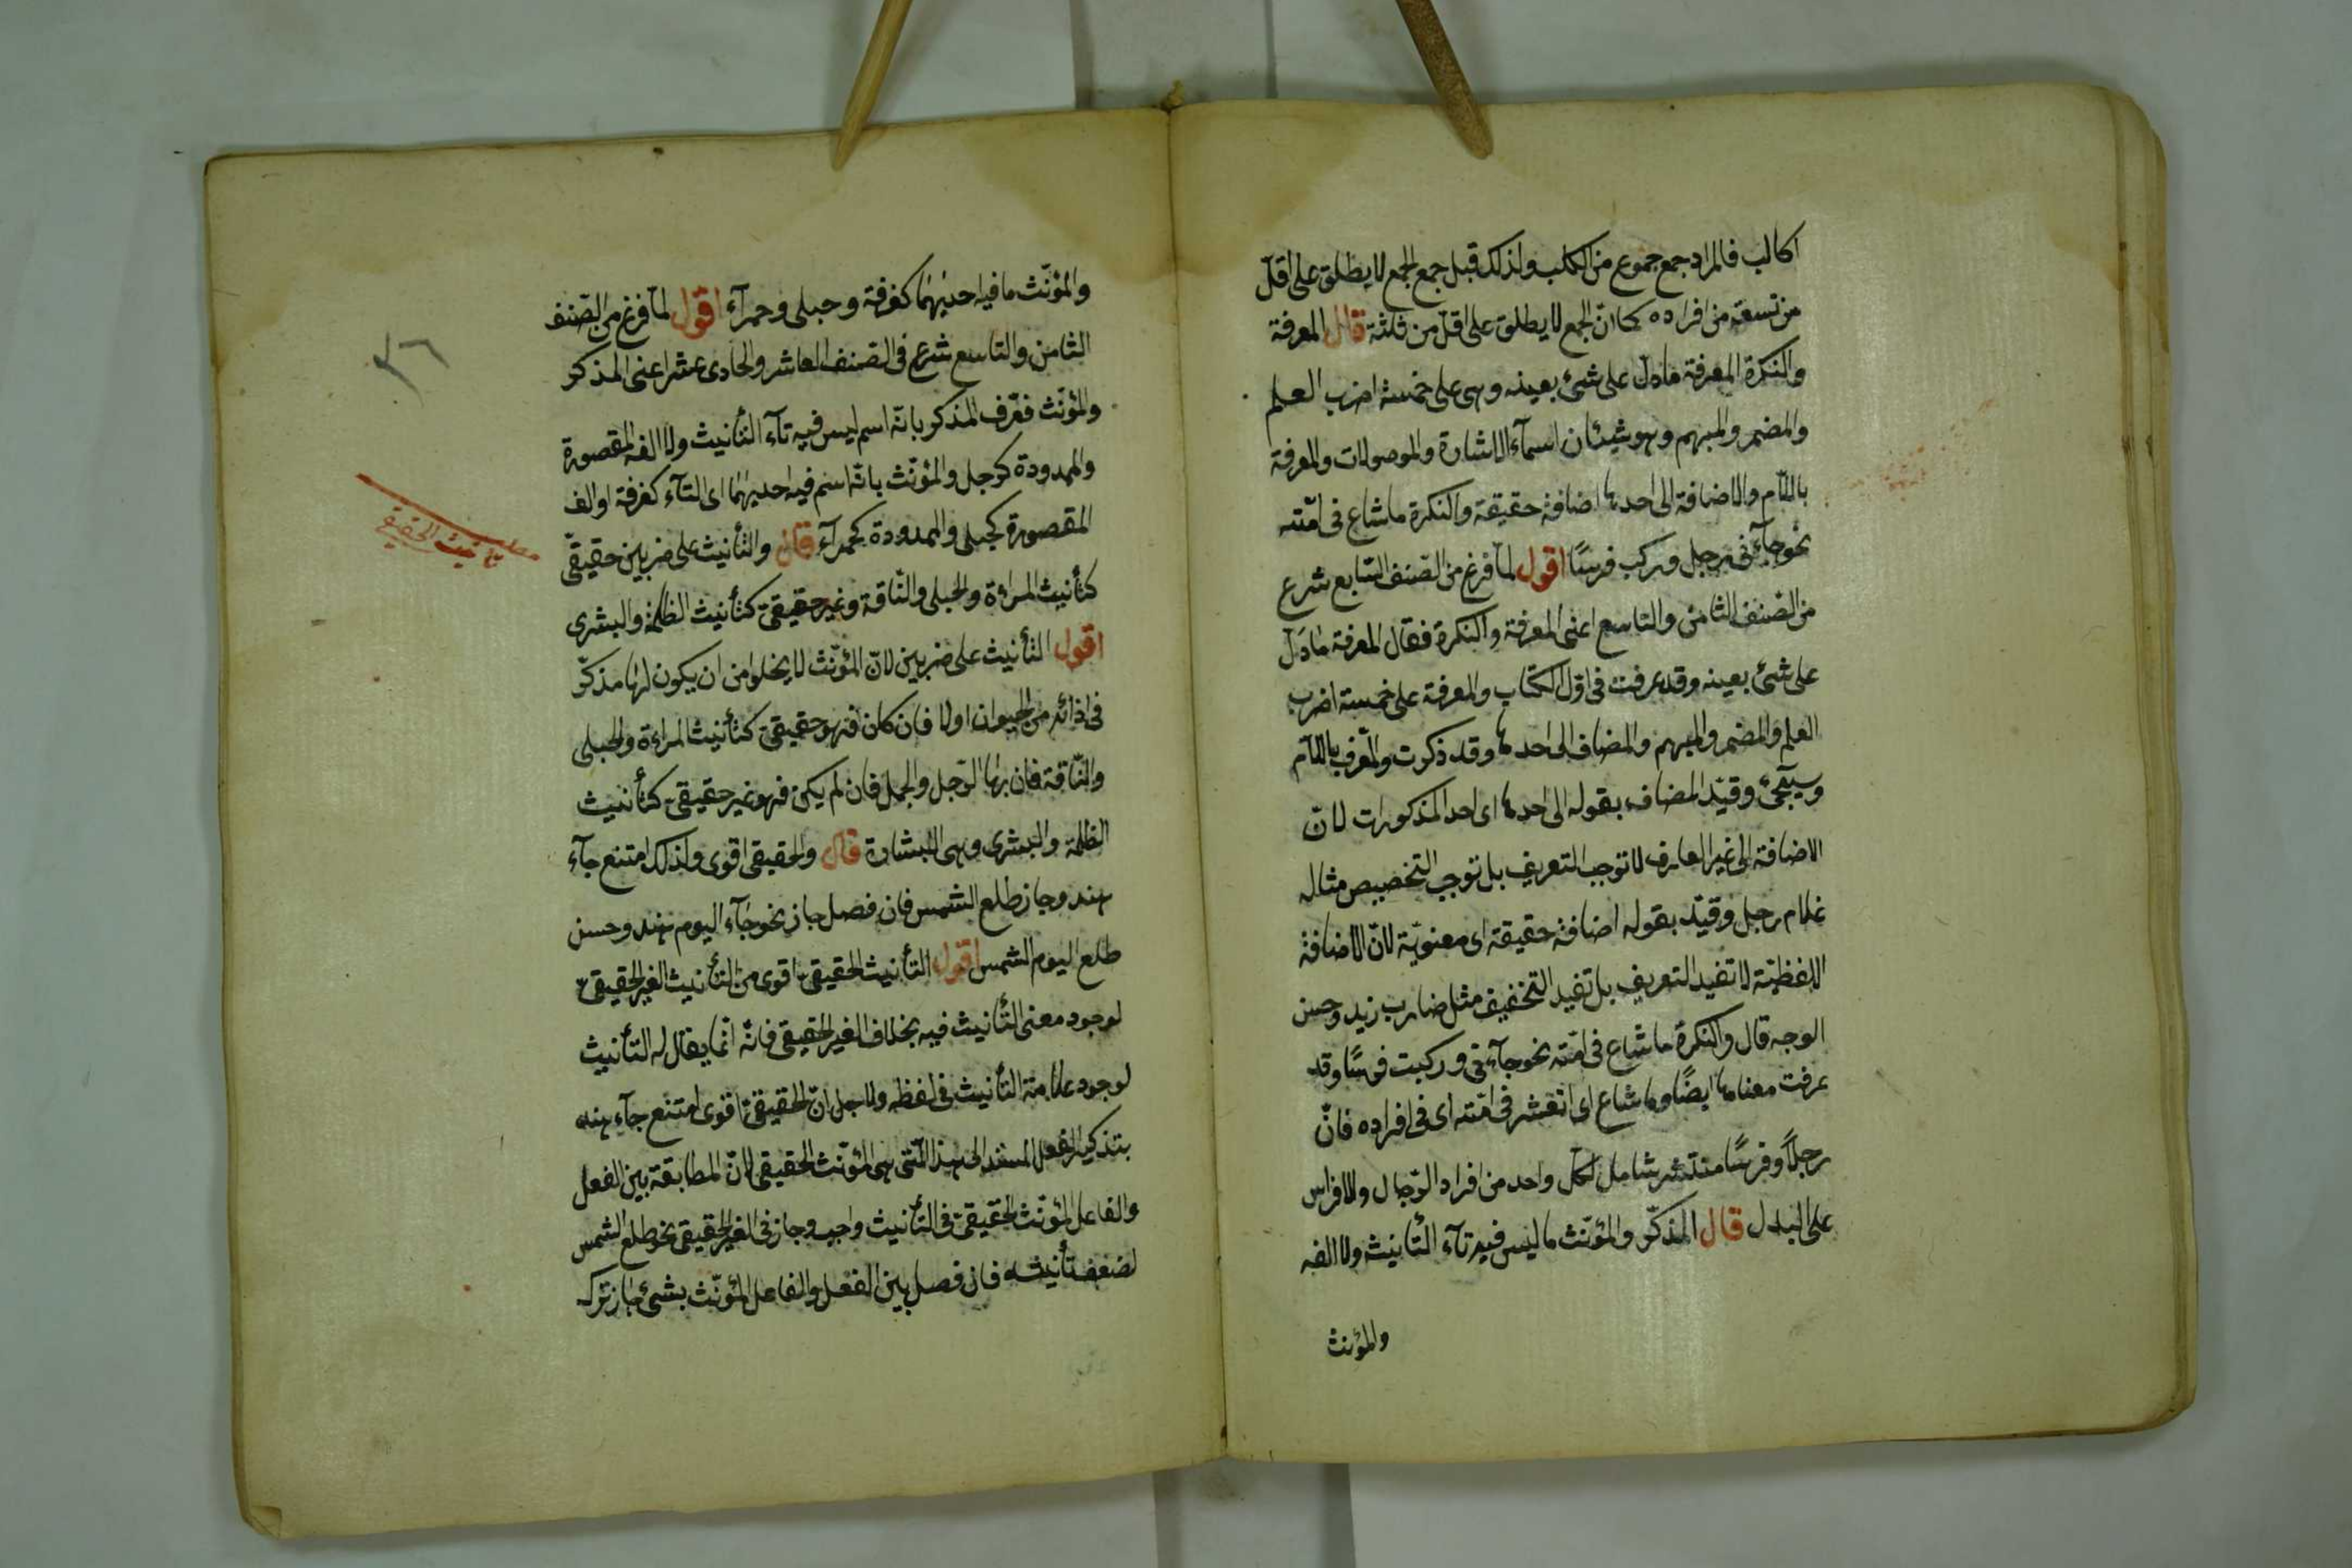 اكالب فالمراد جمع جموع من الكلب ولذلك قيل جمع الجمع لا يطلق على اقلّ
من تسعة من افراده كما انّ الجمع لا يطلق على اقلّ من ثلثة قال المعرفة
والنكرة المعرفة مادلّ على شئ بعينه وهى على خمسة اضرب العلم
والمضمر والمبهم وهو شيئان اسمآء الاشارة والموصولات والمعرفة
باللّام والاضافة الى احدها اضافة حقيقة والنكرة ما شاع فى امّته
نحو جآءنى رجل وركب فرسًا اقول لمآ فرغ من الصّنف السّابع شرع
من الصّنف الثامن والتاسع اعنى المعرفة والنكرة فقال المعرفة مادَلّ
على شئ بعينه وقد عرفت فى اوّل الكتاب والمعرفة على خمسة اضرب
العلم والمضمر والمبهم والمضاف الى احدها وقد ذكرت والمعّرف باللّام
وسيجئ وقيّد المضاف بقوله الى احدها اى احد المذكورات لانّ
الاضافة الى غير المعارف لا توجب التعريف بل توجب التخصيص مثاله
غلام رجل وقيّد بقوله اضافة حقيقة اى معنويّة لانّ الاضافة
اللفظيّة لا تفيد التعريف بل تفيد التخفيف مثل ضارب زيد وحسن
الوجه قال والنكرة ما شاع فى امّته نحو جآءنى وركبت فرسًا وقد
عرفت معناها ايضًا وما شاع اى انتشر فى امّته اى فى افراده فانّ
رجلًا وفرسًا منتشر شامل لكلّ واحد من افراد الرّجال والافراس
على البدل قال المذكّر والمؤنّث ما ليس فيه تآء التأنيث ولا الفه
والمؤنث
والمؤنّث ما فيه احديهما كغرفة وحبلى وحمرآء اقول لمآ فرغ من الصّنف
الثامن والتاسع شرع فى الصنف العاشر والحادى عشر اعنى المذكر
والمؤنّث فعّرف المذكر بانّه اسم ليس فيه تآء التأنيث ولا الفه المقصورة
والممدودة كرجل والمؤنّث بانّه اسم فيه احديهما اى التآء كغرفة او الف
المقصورة كحبلى والممدودة كحمرآء قال والتأنيث على ضربين حقيقىّ
كتأنيث المراءة والحبلى والنّاقة وغير حقيقىّ كتأنيث الظلمة والبشرى
اقول التأنيث على ضربين لانّ المؤنّث لا يخلوا من ان يكون لها مذكّر
فى ازائه من الحيوان اولا فان كان فهو حقيقىّ كتأنيث المراءة والحبلى
والنّاقة فان بها الرّجل والجمل فان لم يكن فهو غير حقيقىّ كتأنيث
الظلمة والبشرى وهى البشارة قال والحقيقى اقوى ولذلك امتنع جآء
هند وجاز طلع الشمس فان فصل جاز نحو جآء اليوم هند وحسن
طلع اليوم الشمس اقول التأنيث الحقيقىّ اقوى من التأنيث الغير الحقيقىّ
لوجود معنى التأنيث فيه بخلاف الغير الحقيقى فانّه انّما يقال له التأنيث
لوجود علامة التأنيث فى لفظه ولاجل انّ الحقيقىّ اقوى امتنع جآء هند
بتذكير الفعل المسند الى هند الّتى هى المؤنّث الحقيقى لانّ المطابقة بين الفعل
والفاعل المؤنّث الحقيقىّ فى التأنيث واجب وجاز فى الغير الحقيقى نحو طلع الشمس
لضعف تأنيثه فان فصل بين الفعل والفاعل المؤنّث بشئ جاز ترك
٣٦
مطلب
تأنيث الحقيقى